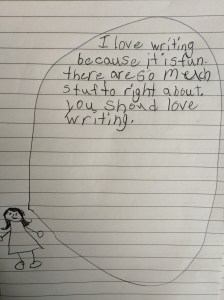 I love writing
because it is fun.
there are so mech
stuf to right about.
you shoud love
writing.